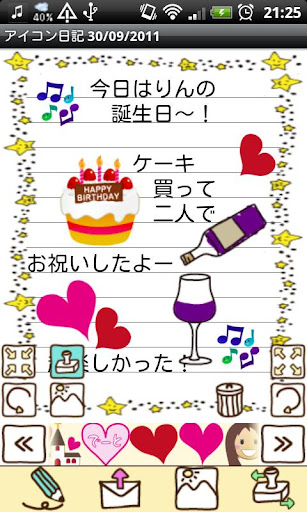 40%
21:25
アイコン日記 30/09/2011
今日はりんの
誕生日～！
ケーキ
買って
二人で
HAPPY
BIRTHDAY
お祝いしたよー
しかった！
でーと